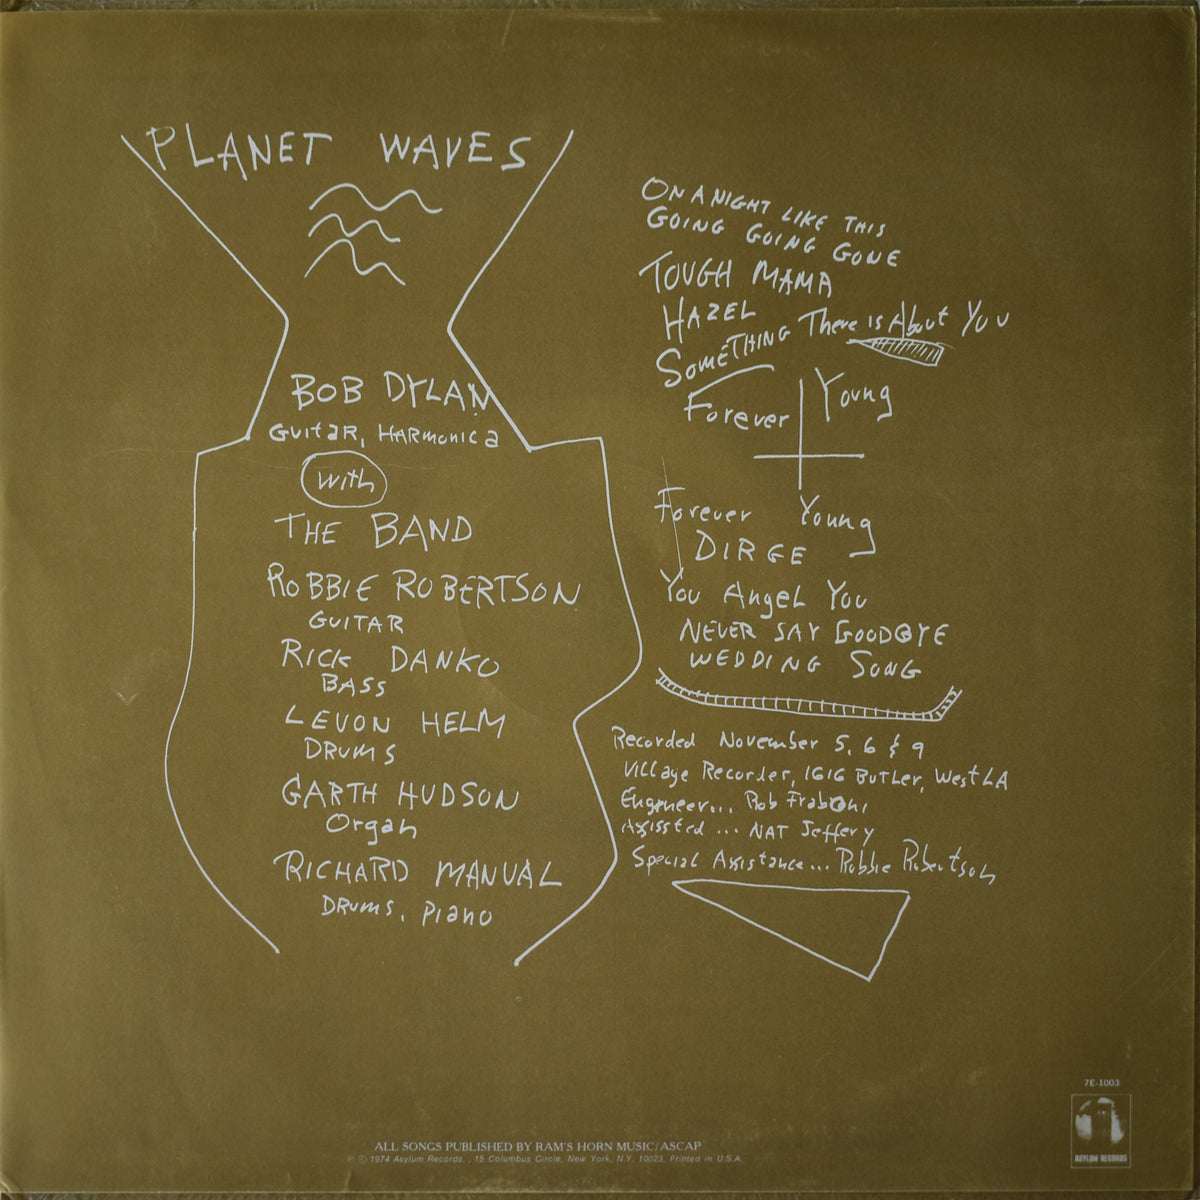 PLANET WAVES
BOB DYLAN
GUITAR, HARMONICA
With
THE BAND
ROBBIE ROBERTSON
GUITAR
RICK DANKO
BASS
LEVON HELM
DRUMS
GARTH HUDSON
Organ
RICHARD MANUAL
DRUMS, PIANO
ON A NIGHT LIKE THIS
GOING GOING GONE
TOUGH MAMA
HAZEL
SOMETHING There is About You
Forever Young
Forever Young
DIRGE
You Angel You
NEVER SAY GOODBYE
WEDDING SONG
Recorded November 5, 6 & 9
Village Recorder, 1616 BUTLER, West LA
Engineer... Rob Fraboni
Assissted ... NAT Jeffery
Special Assistance... Robbie Robertson
7E-1003
ASYLUM RECORDS
ALL SONGS PUBLISHED BY RAM'S HORN MUSIC/ASCAP
℗ © 1974 Asylum Records. , 15 Columbus Circle, New York, N.Y. 10023. Printed in U.S.A.